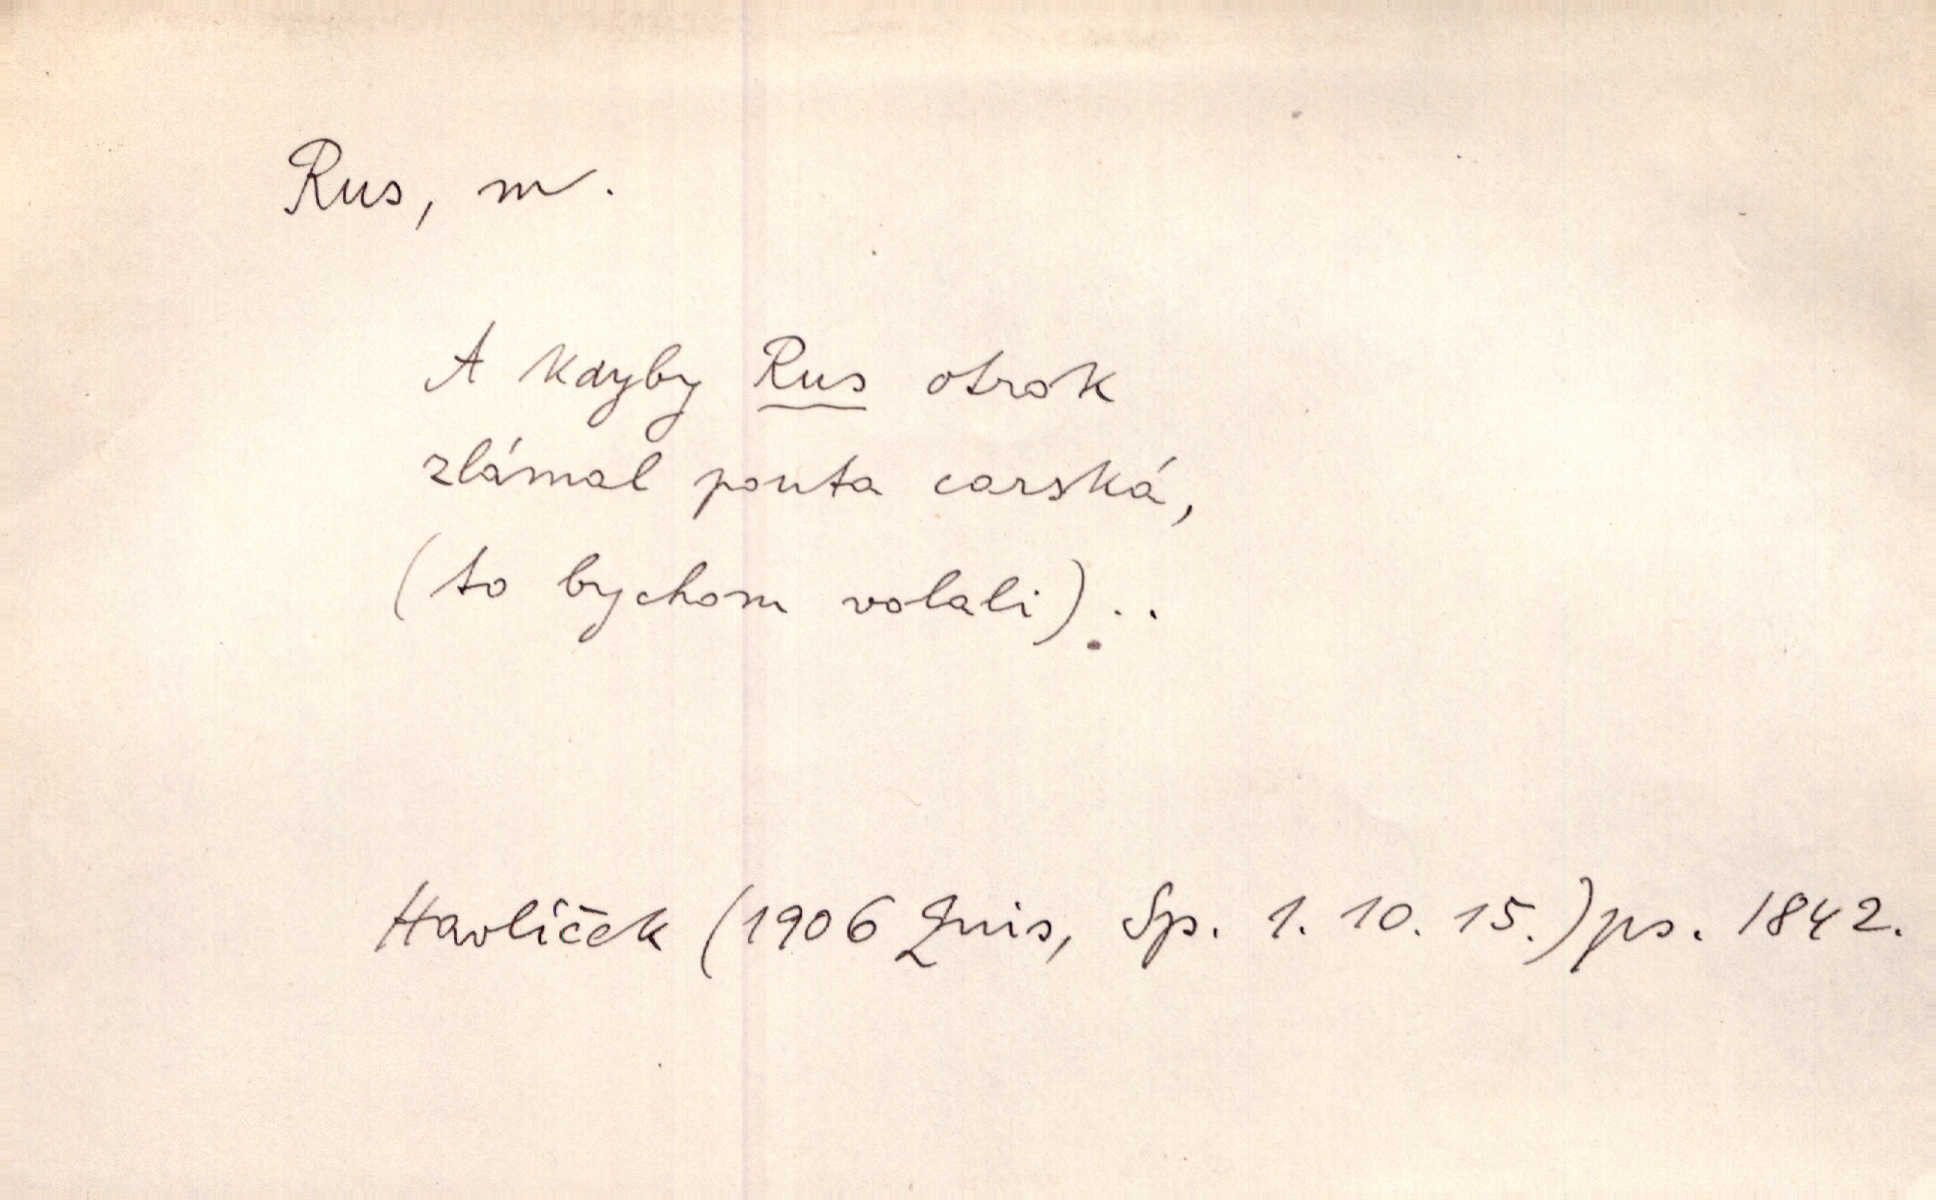 Rus, m.
A kdyby Rus otrok
zlámal pouta carská,
(to bychom volali)...
Havlíček (1906 Quis, Sp. 1. 10. 15.) ps. 1842.